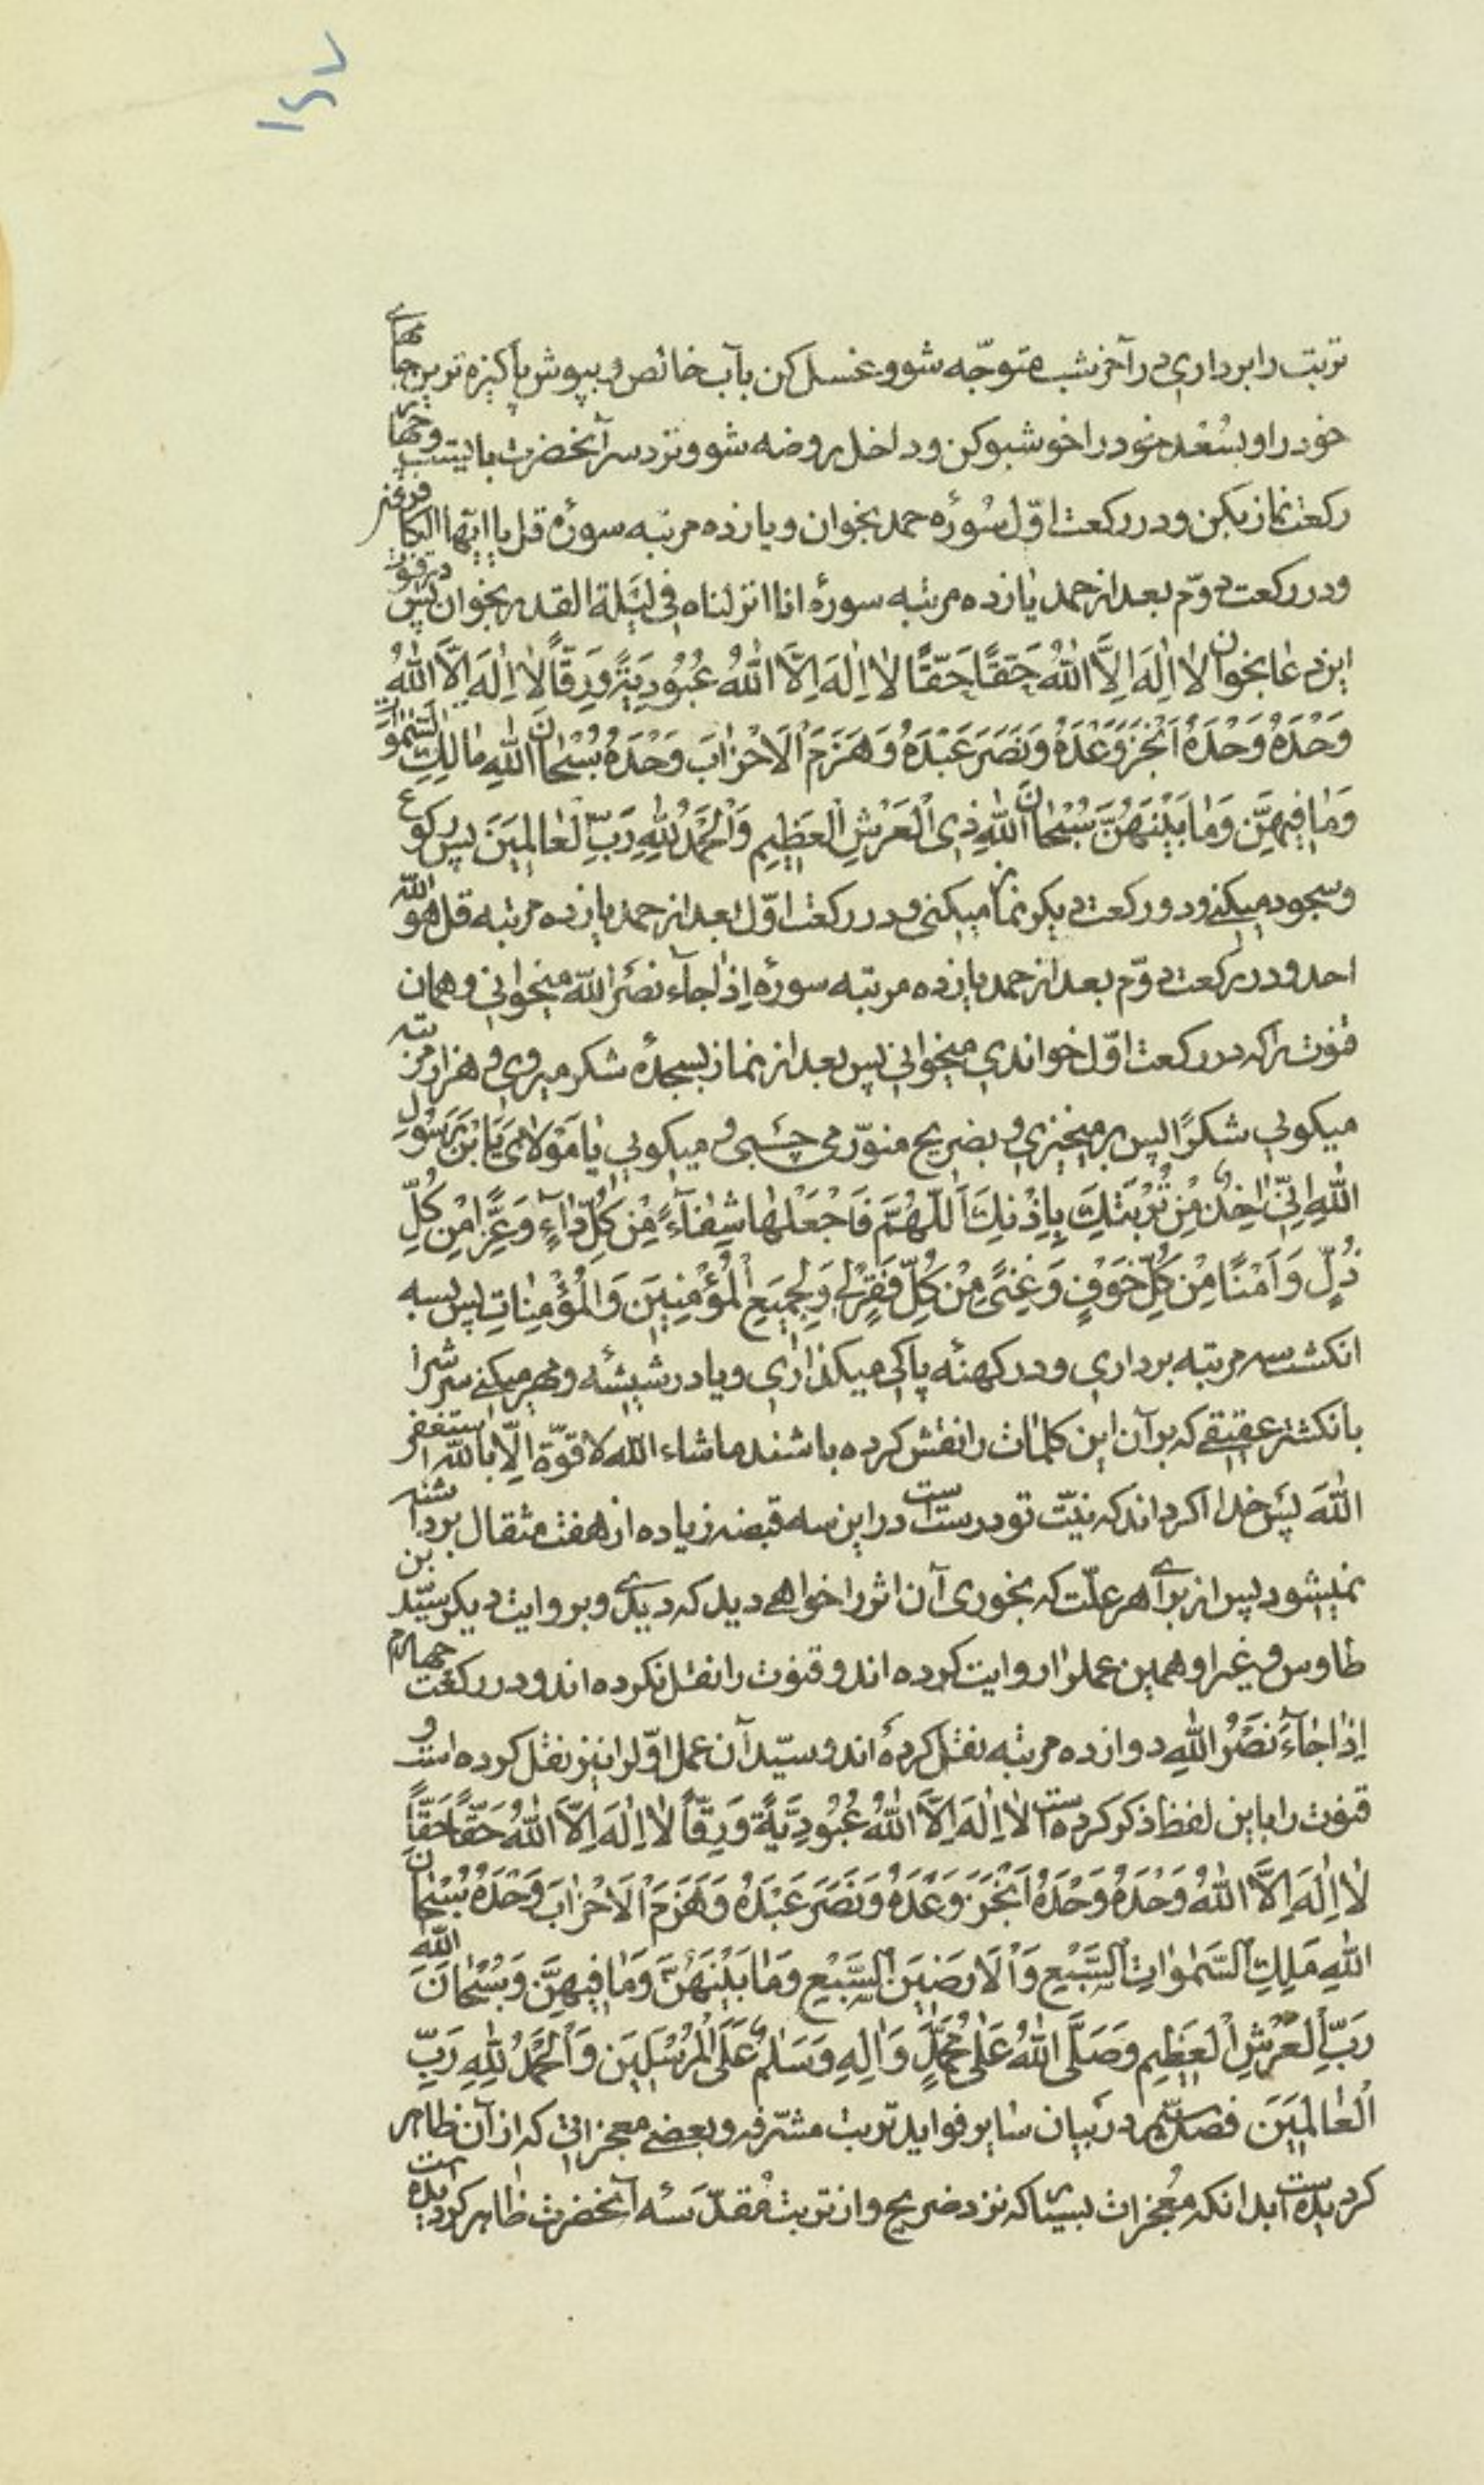 ۱۵۷
تربت را برداری در آخر شب متوجّه شو و غسل کن بآب خالص و بپوش پاکیزه ترین جامهای
خود را و بسُعْد خود را خوشبو کن و داخل روضه شو و نزد سر آنحضرت بایست و چهار
رکعت نماز بکن و در رکعت اوّل سُورُه حمد بخوان و یازده مرتبه سورهٔ قل یا ایّها الکافرون
و در رکعت دوّم بعد از حمد یازده مرتبه سورهٔ انا انزلناه فی لَیْلَة القدر بخوان پس در قنوت
این دعا بخوان لا اِلٰهَ اِلَّا اللّٰهُ حَقًّا حَقًّا لا اِلٰهَ اِلَّا اللّٰهُ عُبُودِیَّةً وَ رِقّاً لا اِلٰهَ اِلَّا اللّٰهُ
وَحْدَهُ وَحْدَهُ اَنْجَزَ وَعْدَهُ وَ نَصَرَ عَبْدَهُ وَ هَزَمَ الْاَحْزابَ وَحْدَهُ سُبْحانَ اللّٰهِ مالِكِ السَّمٰوات
وَ ما فِیهِنَّ وَ ما بَیْنَهُنَّ سُبْحانَ اللّٰهِ ذِی الْعَرْشِ الْعَظِیمِ وَ الْحَمْدُ لِلّٰهِ رَبِّ الْعالَمِینَ پس رکوع
و سجود میکنی و دو رکعت دیکر نماز میکنی و در رکعت اوّل بعد از حمد یازده مرتبه قل هو اللّٰه
احد و در رکعت دوّم بعد از حمد یازده مرتبه سورهٔ اِذا جآءَ نصْرُ اللّٰه میخوانی و همان
قنوت را که در رکعت اوّل خواندی میخوانی پس بعد از نماز بسجدهٔ شکر میروی و هزار مرتبه
میکوئی شکرًا پس برمیخیزی و بضریح منوّر می چسبی و میکوئی یا مَوْلایَ یَا بْنَ رَسُولِ
اللّٰهِ اِنّی اٰخِذٌ مِنْ تُرْبَتِكَ بِاِذْنِكَ اَللّٰهُمَّ فَاجْعَلْها شِفآءً مِنْ کُلِّ دآءٍ وَ عِزًّا مِنْ کُلِّ
ذُلٍّ وَ اَمْنًا مِنْ کُلِّ خَوْفٍ وَ غِنًی مِنْ کُلِّ فَقْرٍ لی وَ لِجَمِیعِ الْمُؤْمِنِینَ وَ الْمُؤْمِناتِ پس بسه
انکشت سه مرتبه برداری و در کهنهٔ پاکی میکذاری و یا در شیشهٔ و مهر میکنی سرش را
بانکشتر عقیقی که بر آن این کلمات را نقش کرده باشند ماشاء اللّٰه لا قوّة الّا باللّٰه استغفر
اللّٰهَ پس خدا اکر داند که نیّت تو درست است در این سه قبضه زیاده از هفت مثقال برداشته
نمیشود پس از برای هر علّت که بخوری آن اثر را خواهی دید که دیدی و بروایت دیکر سیّد بن
طاوس و غیر او همین عمل را روایت کرده اند و قنوت را نقل نکرده اند و در رکعت چهارم
اِذا جآءَ نَصْرُ اللّٰهِ دوازده مرتبه نقل کردهٔ اند و سیّد آن عمل اوّل را نیز نقل کرده است و
قنوت را باین لفظ ذکر کرده است لا اِلٰهَ اِلَّا اللّٰهُ عُبُودِیَّةً وَ رِقّاً لا اِلٰهَ اِلَّا اللّٰهُ حَقّاً حَقّاً
لا اِلٰهَ اِلَّا اللّٰهُ وَحْدَهُ وَحْدَهُ اَنْجَزَ وَعْدَهُ وَ نَصَرَ عَبْدَهُ وَ هَزَمَ الْاَحْزابَ وَحْدَهُ سُبْحانَ
اللّٰهِ مَلِكِ السَّمٰواتِ السَّبْعِ وَ الْاَرَضِینَ السَّبْعِ وَ ما بَیْنَهُنَّ وَ ما فِیهِنَّ وَ سُبْحانَ اللّٰهِ
رَبِّ الْعَرْشِ الْعَظِیمِ وَ صَلَّی اللّٰهُ عَلٰی مُحَمَّدٍ وَ اٰلِهِ وَ سَلامٌ عَلَی الْمُرْسَلِینَ وَ الْحَمْدُ لِلّٰهِ رَبِّ
الْعالَمِینَ فصل در بیان سایر فواید تربت مشرّفه و بعضی معجزاتی که از آن ظاهر
کردیده است بدانکه مُعجزات بسیار که نزد ضریح و از تربت مُقدّسهٔ آنحضرت ظاهر کردیده است